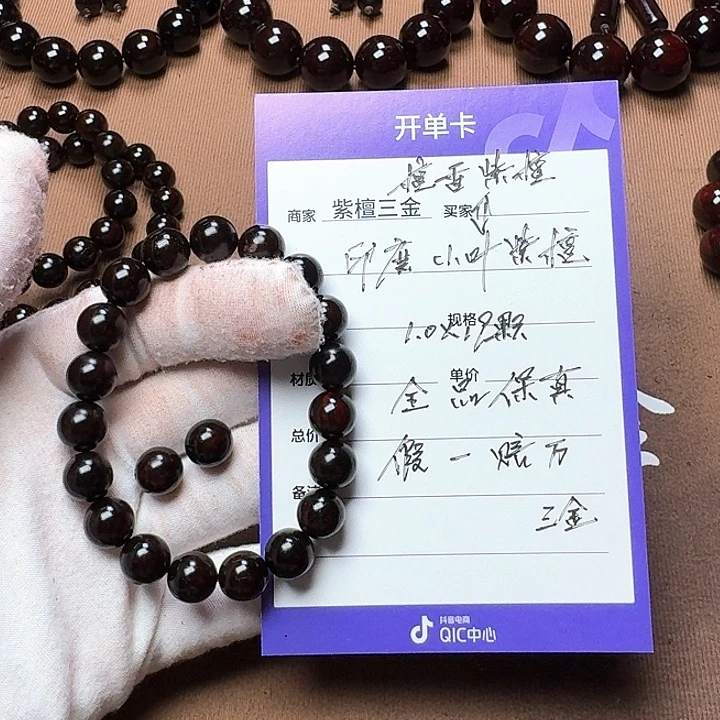 开单卡
檀香紫檀
商家 紫檀三金 买家
印度小叶紫檀
规格
1.0×19颗
材质 单价
全品保真
总价
假一赔万
备注
三金
抖音电商
QIC中心